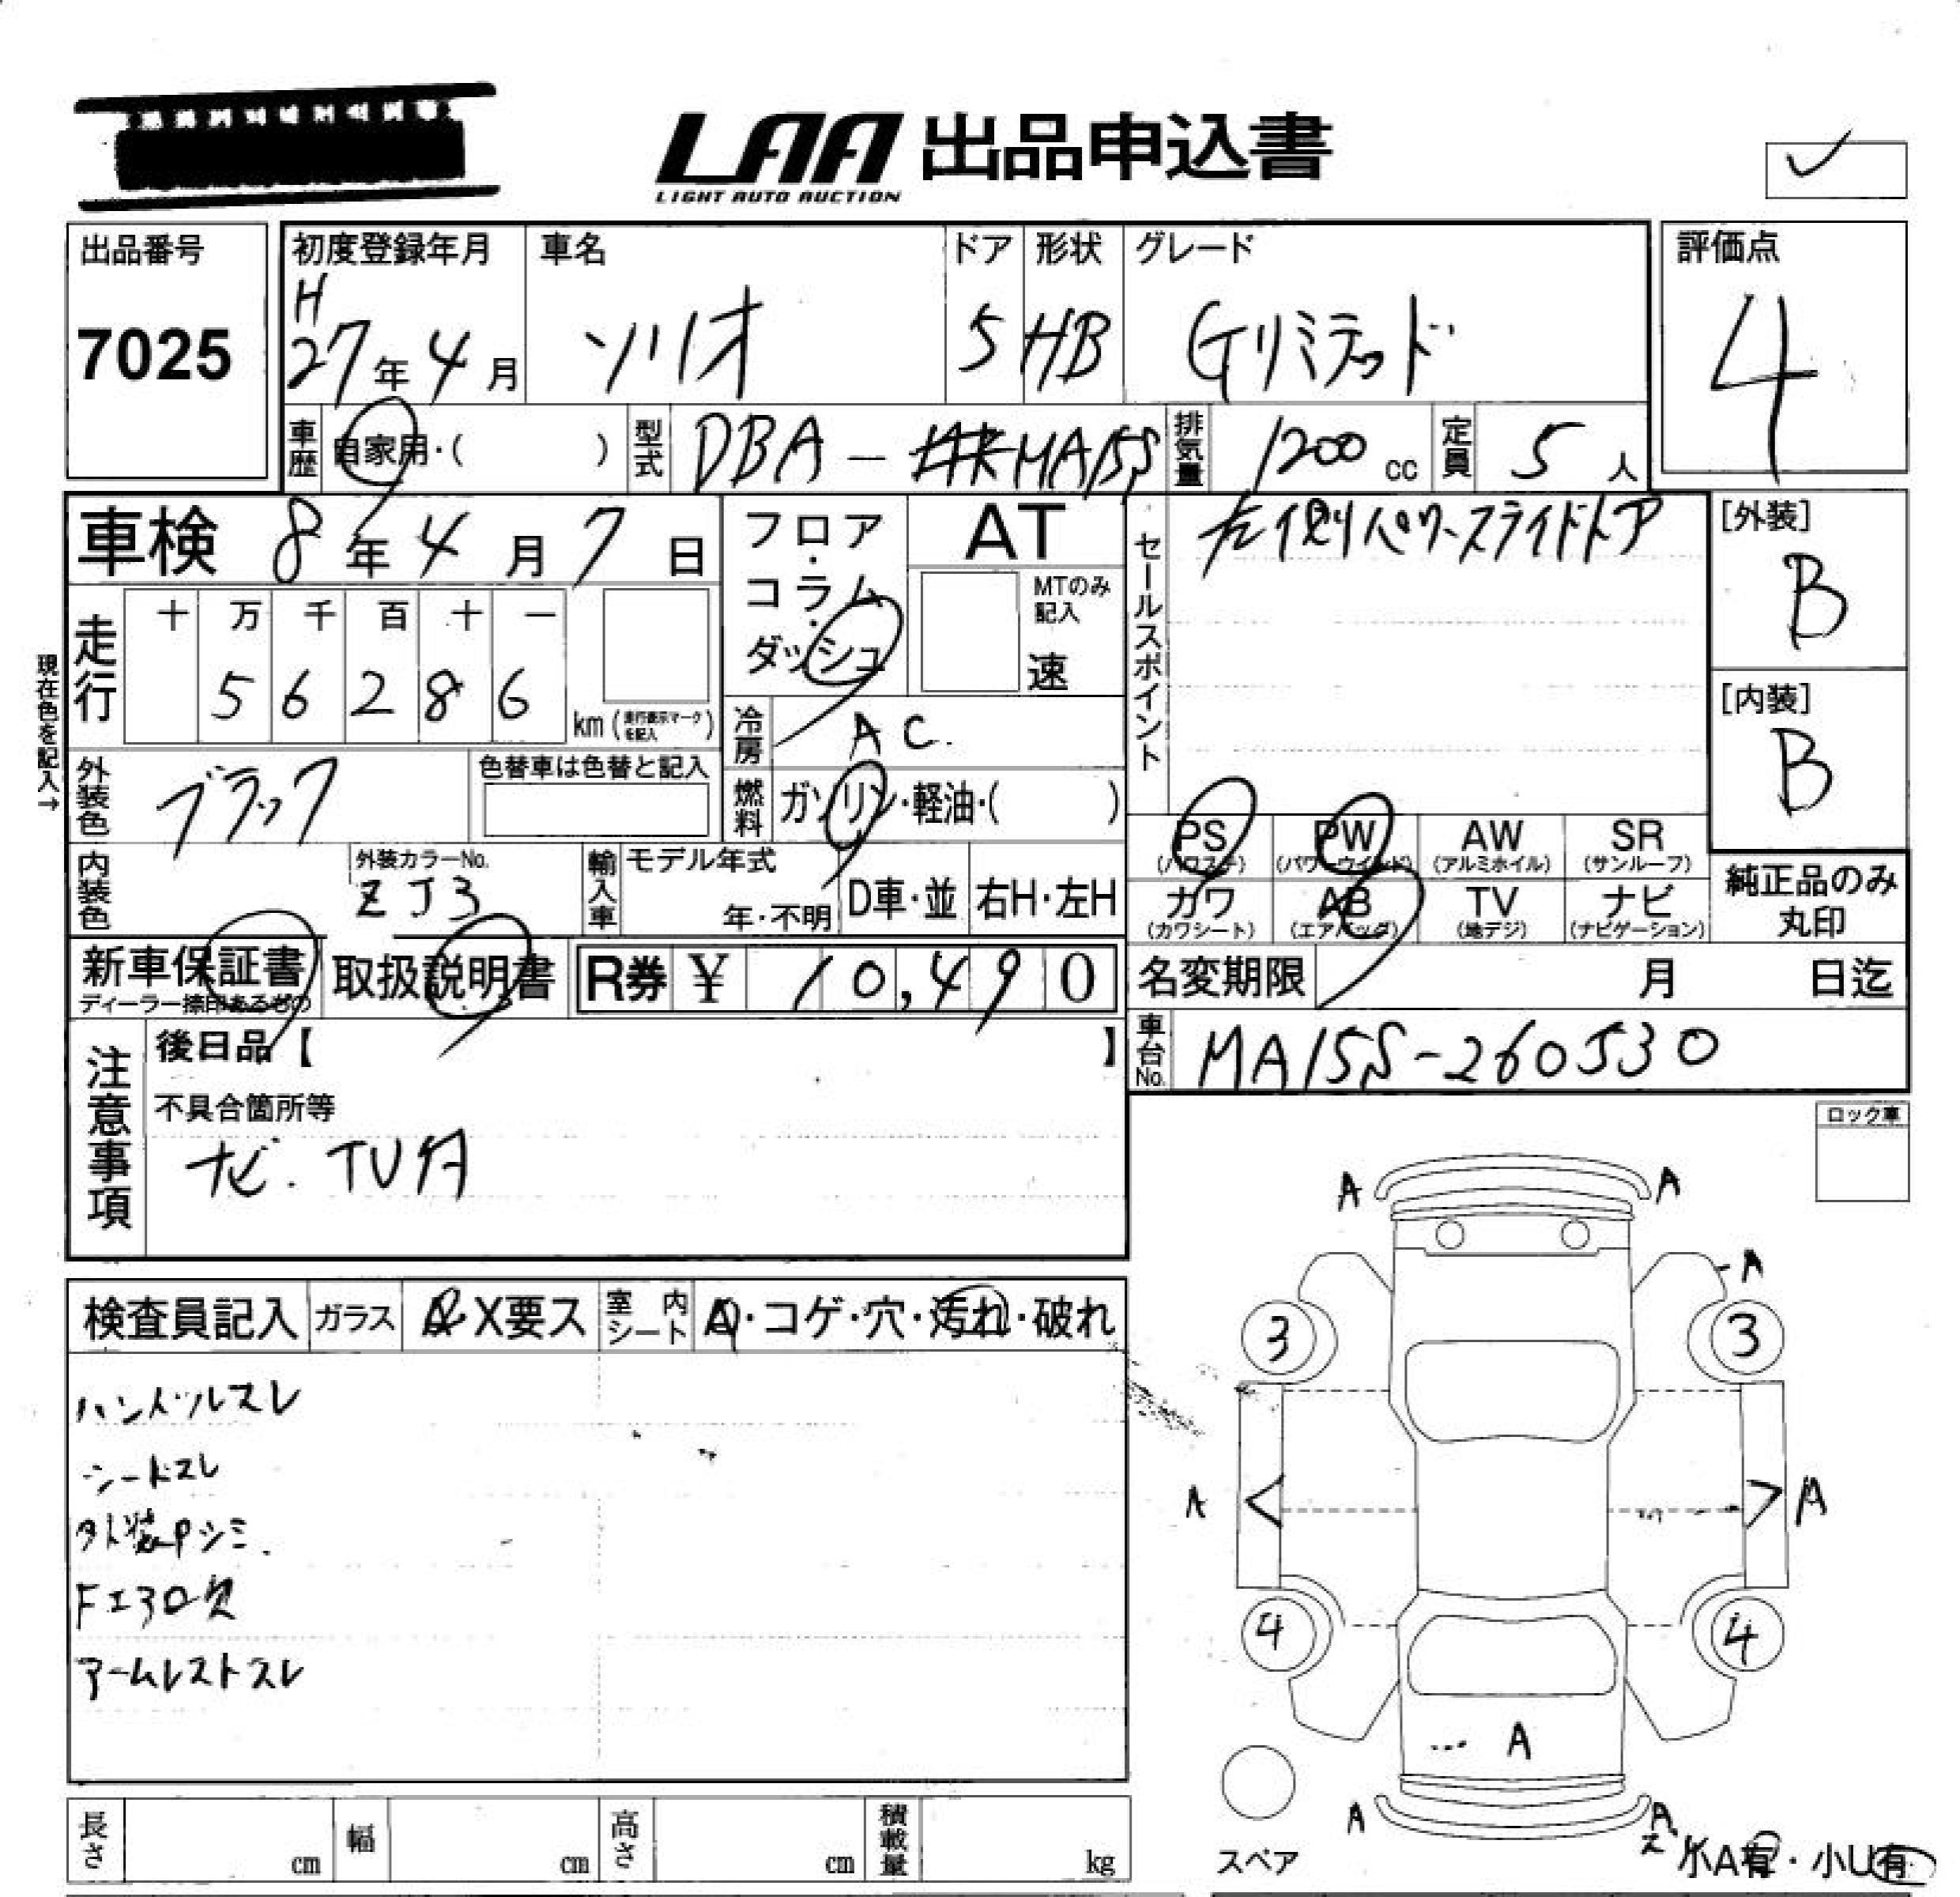 LAA 出品申込書
LIGHT AUTO AUCTION
出品番号
7025
初度登録年月
H
27年4月
車名
ソリオ
ドア
5
形状
HB
グレード
Gリミテッド
評価点
4
車歴 自家用・( )
型式 DBA-MA15S
排気量 1200 cc
定員 5 人
車検 8年4月7日
フロア・コラム・ダッシュ
AT
MTのみ記入
速
セールスポイント
左側パワースライドドア
[外装]
B
[内装]
B
現在色を記入→
走行
十 万 千 百 十 一
5 6 2 8 6
km (走行表示マークを記入)
冷房 AC.
燃料 ガソリン・軽油・( )
外装色 ブラック
色替車は色替と記入
内装色
外装カラーNo.
ZJ3
輸入車
モデル年式
年・不明
D車・並
右H・左H
PS (パワステ)
PW (パワーウインド)
AW (アルミホイル)
SR (サンルーフ)
カワ (カワシート)
AB (エアバッグ)
TV (地デジ)
ナビ (ナビゲーション)
純正品のみ丸印
新車保証書
ディーラー捺印あるもの
取扱説明書
R券 ¥ 10,490
名変期限 月 日迄
車台No. MA15S-260530
注意事項
後日品【 】
不具合箇所等
ナビ.TV付
ロック車
検査員記入
ガラス A・X要ス
室内シート A・コゲ・穴・汚れ・破れ
ハンドルスレ
シートスレ
外装中シミ.
Fエプロ欠
アームレストスレ
A A
A
3 3
A A
4 4
A
A A
スペア
小A有・小U有
長さ cm
幅 cm
高さ cm
積載量 kg